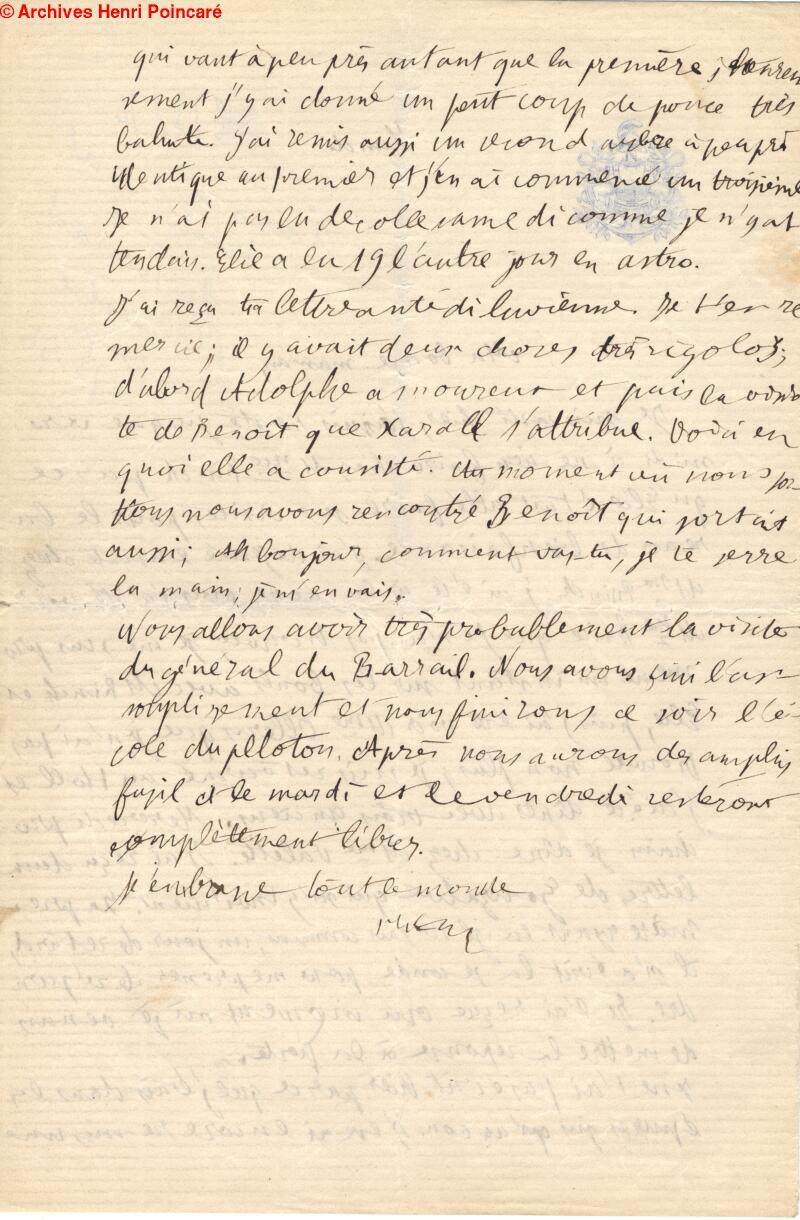 © Archives Henri Poincaré
qui vaut à peu près autant que la première ; heureu
sement j'y ai donné un petit coup de pouce très
bahuté. J'ai remis aussi un second arbre à peu près
identique au premier et j'en ai commencé un troisième
Je n'ai pas eu de colle samedi comme je n'y at
tendais. Elie a eu 19 l'autre jour en astro.
J'ai reçu ta lettre antédiluvienne. Je t'en re
mercie ; il y avait deux choses très rigolos ;
d'abord Adolphe amoureux et puis la visi
te de Benoît que Xardll s'attribue. Voici en
quoi elle a consisté. Au moment où nous sor
tions nous avons rencontré Benoît qui sortait
aussi ; Ah bonjour, comment vas-tu, je te serre
la main, je m'en vais.
Nous allons avoir très probablement la visite
du général du Barrail. Nous avons fini l'as-
souplissement et nous finirons ce soir l'é
cole du peloton. Après nous aurons des amphis
fusil et le mardi et le vendredi resteront
complètement libres.
J'embrasse tout le monde